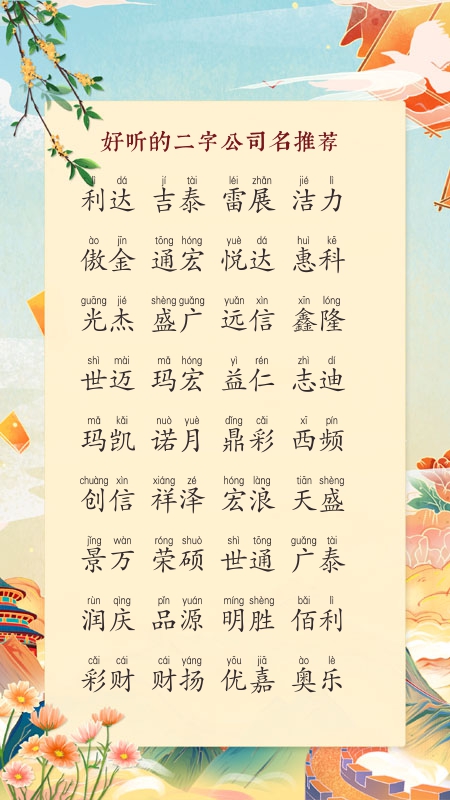 好听的二字公司名推荐
lì dá jí tài léi zhǎn jié lì
利达 吉泰 雷展 洁力
ào jīn tōng hóng yuè dá huì kē
傲金 通宏 悦达 惠科
guāng jié shèng guǎng yuǎn xìn xīn lóng
光杰 盛广 远信 鑫隆
shì mài mǎ hóng yì rén zhì dí
世迈 玛宏 益仁 志迪
mǎ kǎi nuò yuè dǐng cǎi xī pín
玛凯 诺月 鼎彩 西频
chuàng xìn xiáng zé hóng làng tiān shèng
创信 祥泽 宏浪 天盛
jǐng wàn róng shuò shì tōng guǎng tài
景万 荣硕 世通 广泰
rùn qìng pǐn yuán míng shèng bǎi lì
润庆 品源 明胜 佰利
cǎi cái cái yáng yōu jiā ào lè
彩财 财扬 优嘉 奥乐